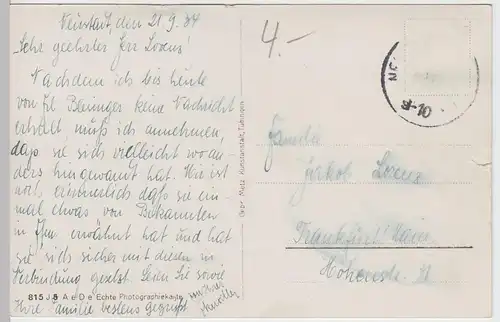 Neustadt, den 21.9.34
Sehr geehrter Herr Lorenz
Nachdem ich bis heute
von Frl. Beninger keine Nachricht
erhielt, muß ich annehmen,
daß sie sich vielleicht woan-
ders hingewandt hat. Mir ist
noch erinnerlich daß sie ein-
mal etwas von Bekannten
in erwähnt hat und hat
sie sich sicher mit diesen in
Verbindung gesetzt. Seien Sie sowie
Ihre Familie bestens gegrüßt
815 J.8 A e D e Echte Photographiekarte
Gebr. Metz Kunstanstalt, Tübingen
4.-
8-10
Familie
Jakob Lorenz
Frankfurt Main